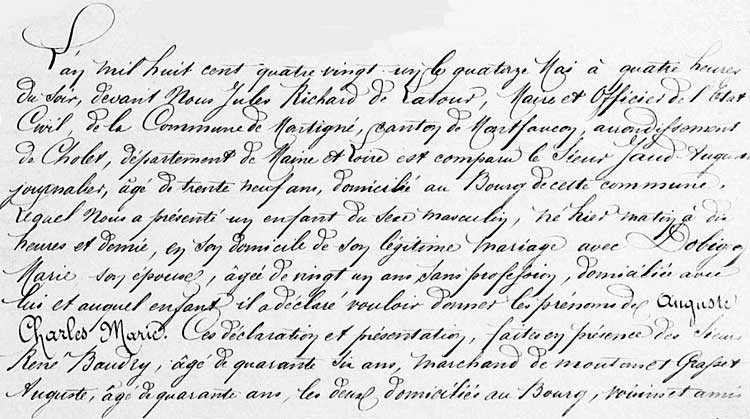 L'an mil huit cent quatre vingt un, le quatorze Mai à quatre heures
du soir, devant Nous Jules Richard de Latour, Maire et Officier de l'Etat
Civil, de la Commune de Martigné, canton de Montfaucon, arrondissement
de Cholet, département de Maine et Loire est comparu le Sieur Jaud Auguste
journalier, âgé de trente neuf ans, domicilié au Bourg de cette commune.
Lequel Nous a présenté un enfant du sexe masculin, né hier matin à dix
heures et demie, en son domicile de son légitime mariage avec
Marie son épouse, agée de vingt un ans, sans profession, domiciliée avec
lui et auquel enfant il a déclaré vouloir donner les prénoms de Auguste
Charles Marie. Ces déclaration et présentation, faites en présence des Sieurs
René Baudry, âgé de quarante six ans, marchand de moutons et Grasset
Auguste, âgé de quarante ans, les deux domiciliés au Bourg, voisins et amis